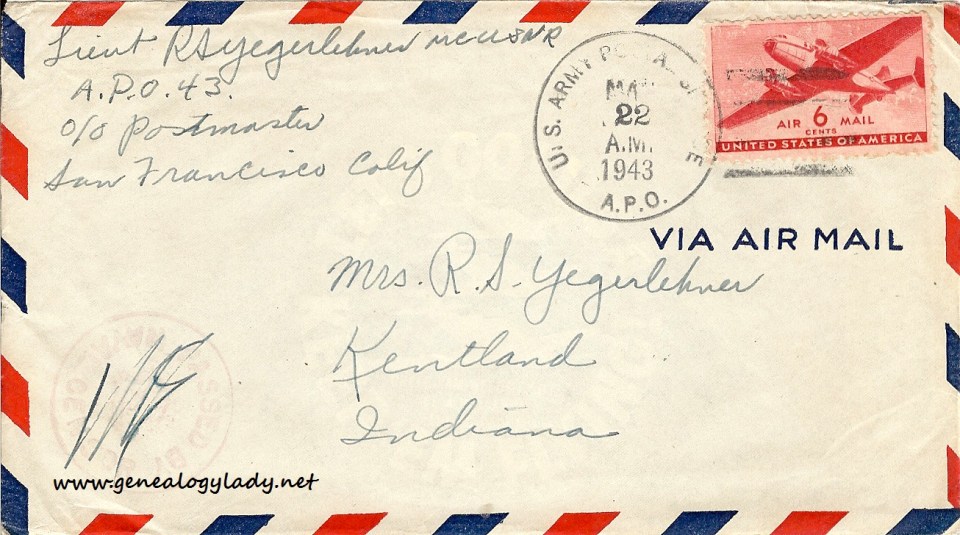 Lieut R S Yegerlehner MC USNR
A.P.O. 43.
c/o Postmaster
San Francisco Calif
U.S. ARMY POSTAL SERVICE
22
A.M.
1943
A.P.O.
AIR 6 MAIL
CENTS
UNITED STATES OF AMERICA
VIA AIR MAIL
Mrs. R. S. Yegerlehner
Kentland
Indiana
PASSED BY
NAVAL
www.genealogylady.net